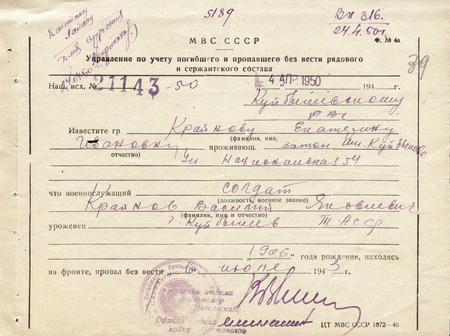 5189
Вх 316.
24.4.50г.
МВС СССР
Ф. № 4а
Управление по учету погибшего и пропавшего без вести рядового
и сержантского состава
39
Наш. исх. № 21143-50
4 АПР 1950
194 г.
Куйбышевскому
РВК
Известите гр. Крайнову Екатерину
(фамилия, имя,
Ивановну проживающ. затон им. Куйбышева
отчество)
ул Национальная 54
что военнослужащий солдат
(должность, военное звание)
Крайнов Василий Яковлевич
(фамилия, имя и отчество)
уроженец Куйбышев ТАССР
1906 года рождения, находясь
на фронте, пропал без вести в июле 1943 г.
отдела
майор
ЦТ МВС СССР 1672—46